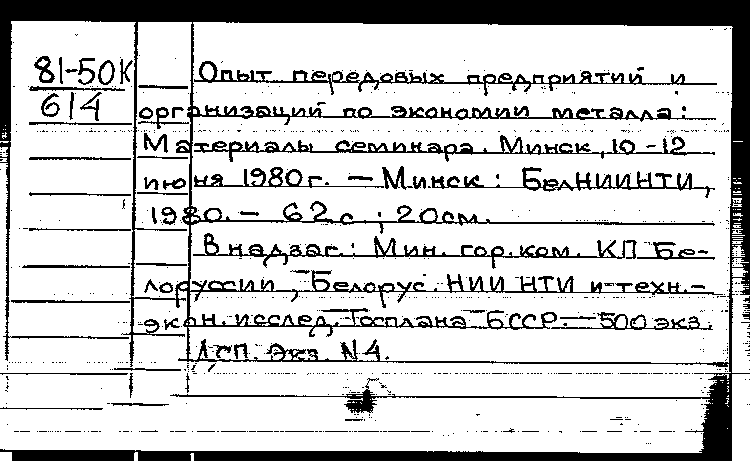 81-50К
614
Опыт передовых предприятий и
организаций по экономии металла:
Материалы семинара. Минск, 10-12
июня 1980г. — Минск: БелНИИНТИ,
1980. — 62с ; 20см.
В надзаг.: Мин. гор. ком. КП Бе-
лоруссии, Белорус. НИИ НТИ и техн.-
экон. исслед. Госплана БССР. — 500 экз.
ДСП. Экз. N4.